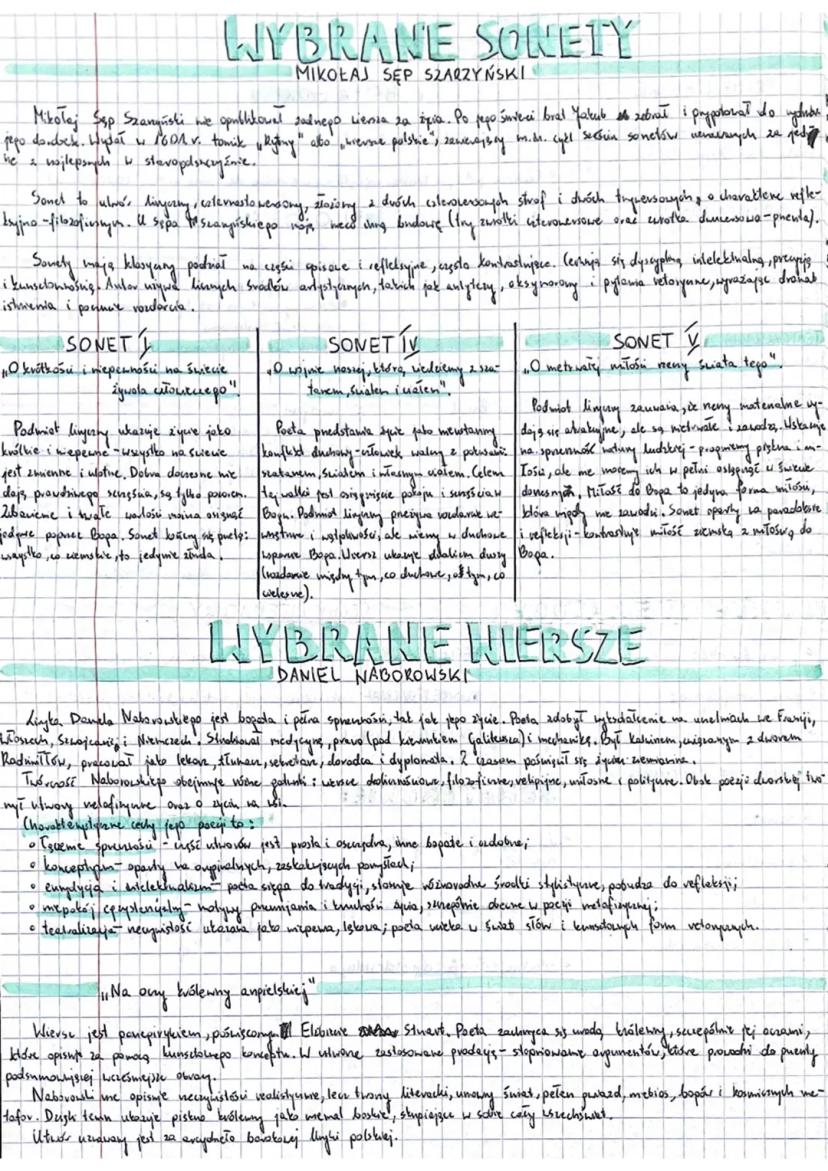 WYBRANE SONETY
MIKOŁAJ SĘP SZARZYŃSKI
Mikołaj Sęp Szarzyński nie opublikował żadnego wiersza za życia. Po jego śmierci brat Jakub zebrał i przygotował do wydania
jego dorobek. Wydał w 1601 r. tomik „Rytmy" albo „wiersze polskie", zawierający m.in. cykl sześciu sonetów uznawanych za jedne
z najlepszych w staropolszczyźnie.
Sonet to utwór liryczny, czternastowersowy, złożony z dwóch czterowersowych strof i dwóch trzywersowych, o charakterze refle-
ksyjno-filozoficznym. U Sępa Szarzyńskiego mają nieco inną budowę (trzy zwrotki czterowersowe oraz zwrotka dwuwersowa-puenta).
Sonety mają klasyczny podział na części opisowe i refleksyjne, często kontrastujące. Cechują się dyscypliną intelektualną, precyzją
i kunsztownością. Autor używa licznych środków artystycznych, takich jak antytezy, oksymorony i pytania retoryczne, wyrażając dramat
istnienia i poczucie rozdarcia.
SONET I
„O krótkości i niepewności na świecie
żywota człowieczego".
Podmiot liryczny ukazuje życie jako
krótkie i niepewne - wszystko na świecie
jest zmienne i ulotne. Dobra doczesne nie
dają prawdziwego szczęścia, są tylko pozorem.
Zbawienie i trwałe wartości można osiągnąć
jedynie poprzez Boga. Sonet kończy się puentą:
wszystko, co ziemskie, to jedynie złuda.
SONET IV
„O wojnie naszej, którą wiedziemy z sza-
tanem, światem i ciałem".
Poeta przedstawia życie jako nieustanny
konflikt duchowy - człowiek walczy z pokusami
szatanem, światem i własnym ciałem. Celem
tej walki jest osiągnięcie pokoju i szczęścia w
Bogu. Podmiot liryczny przeżywa rozdarcie we-
wnętrzne i wątpliwości, ale wierzy w duchowe
wsparcie Boga. Wiersz ukazuje dualizm duszy
(rozdarcie między tym, co duchowe, a tym, co
cielesne).
SONET V
„O nietrwałej miłości rzeczy świata tego".
Podmiot liryczny zauważa, że rzeczy materialne wy-
dają się atrakcyjne, ale są nietrwałe i zawodzą. Wskazuje
na sprzeczność natury ludzkiej - pragniemy piękna i mi-
łości, ale nie możemy ich w pełni osiągnąć w świecie
doczesnym. Miłość do Boga to jedyna forma miłości,
która nigdy nie zawodzi. Sonet oparty na paradoksie
i refleksji - kontrastuje miłość ziemską z miłością do
Boga.
WYBRANE WIERSZE
DANIEL NABOROWSKI
Liryka Daniela Naborowskiego jest bogata i pełna sprzeczności, tak jak jego życie. Poeta zdobył wykształcenie na uczelniach we Francji,
Włoszech, Szwajcarii i Niemczech. Studiował medycynę, prawo (pod kierunkiem Galileusza) i mechanikę. Był kalwinem, związanym z dworem
Radziwiłłów, pracował jako lekarz, tłumacz, sekretarz, doradca i dyplomata. Z czasem poświęcił się życiu ziemianina.
Twórczość Naborowskiego obejmuje różne gatunki: wiersze okolicznościowe, filozoficzne, religijne, miłosne i polityczne. Obok poezji dworskiej two-
rzył utwory metafizyczne oraz o życiu na wsi.
Charakterystyczne cechy jego poezji to:
• łączenie sprzeczności - część utworów jest prosta i oszczędna, inne bogate i ozdobne;
• konceptyzm - oparty na oryginalnych, zaskakujących pomysłach;
• erudycja i intelektualizm - poeta sięga do tradycji, stosuje różnorodne środki stylistyczne, pobudza do refleksji;
• niepokój egzystencjalny - motywy przemijania i kruchości życia, szczególnie obecne w poezji metafizycznej;
• teatralizacja - rzeczywistość ukazana jako niepewna, lękowa; poeta ucieka w świat słów i kunsztownych form retorycznych.
„Na oczy królewny angielskiej"
Wiersz jest panegirykiem, poświęconym Elżbiecie Stuart. Poeta zachwyca się urodą królewny, szczególnie jej oczami,
które opisuje za pomocą kunsztownego konceptu. W utworze zastosowano gradację - stopniowanie argumentów, które prowadzi do puenty
podsumowującej wcześniejsze obrazy.
Naborowski nie opisuje rzeczywistości realistycznie, lecz tworzy literacki, umowny świat, pełen gwiazd, niebios, bogów i kosmicznych me-
tafor. Dzięki temu ukazuje piękno królewny jako niemal boskie, skupiające w sobie cały wszechświat.
Utwór uznawany jest za arcydzieło barokowej liryki polskiej.